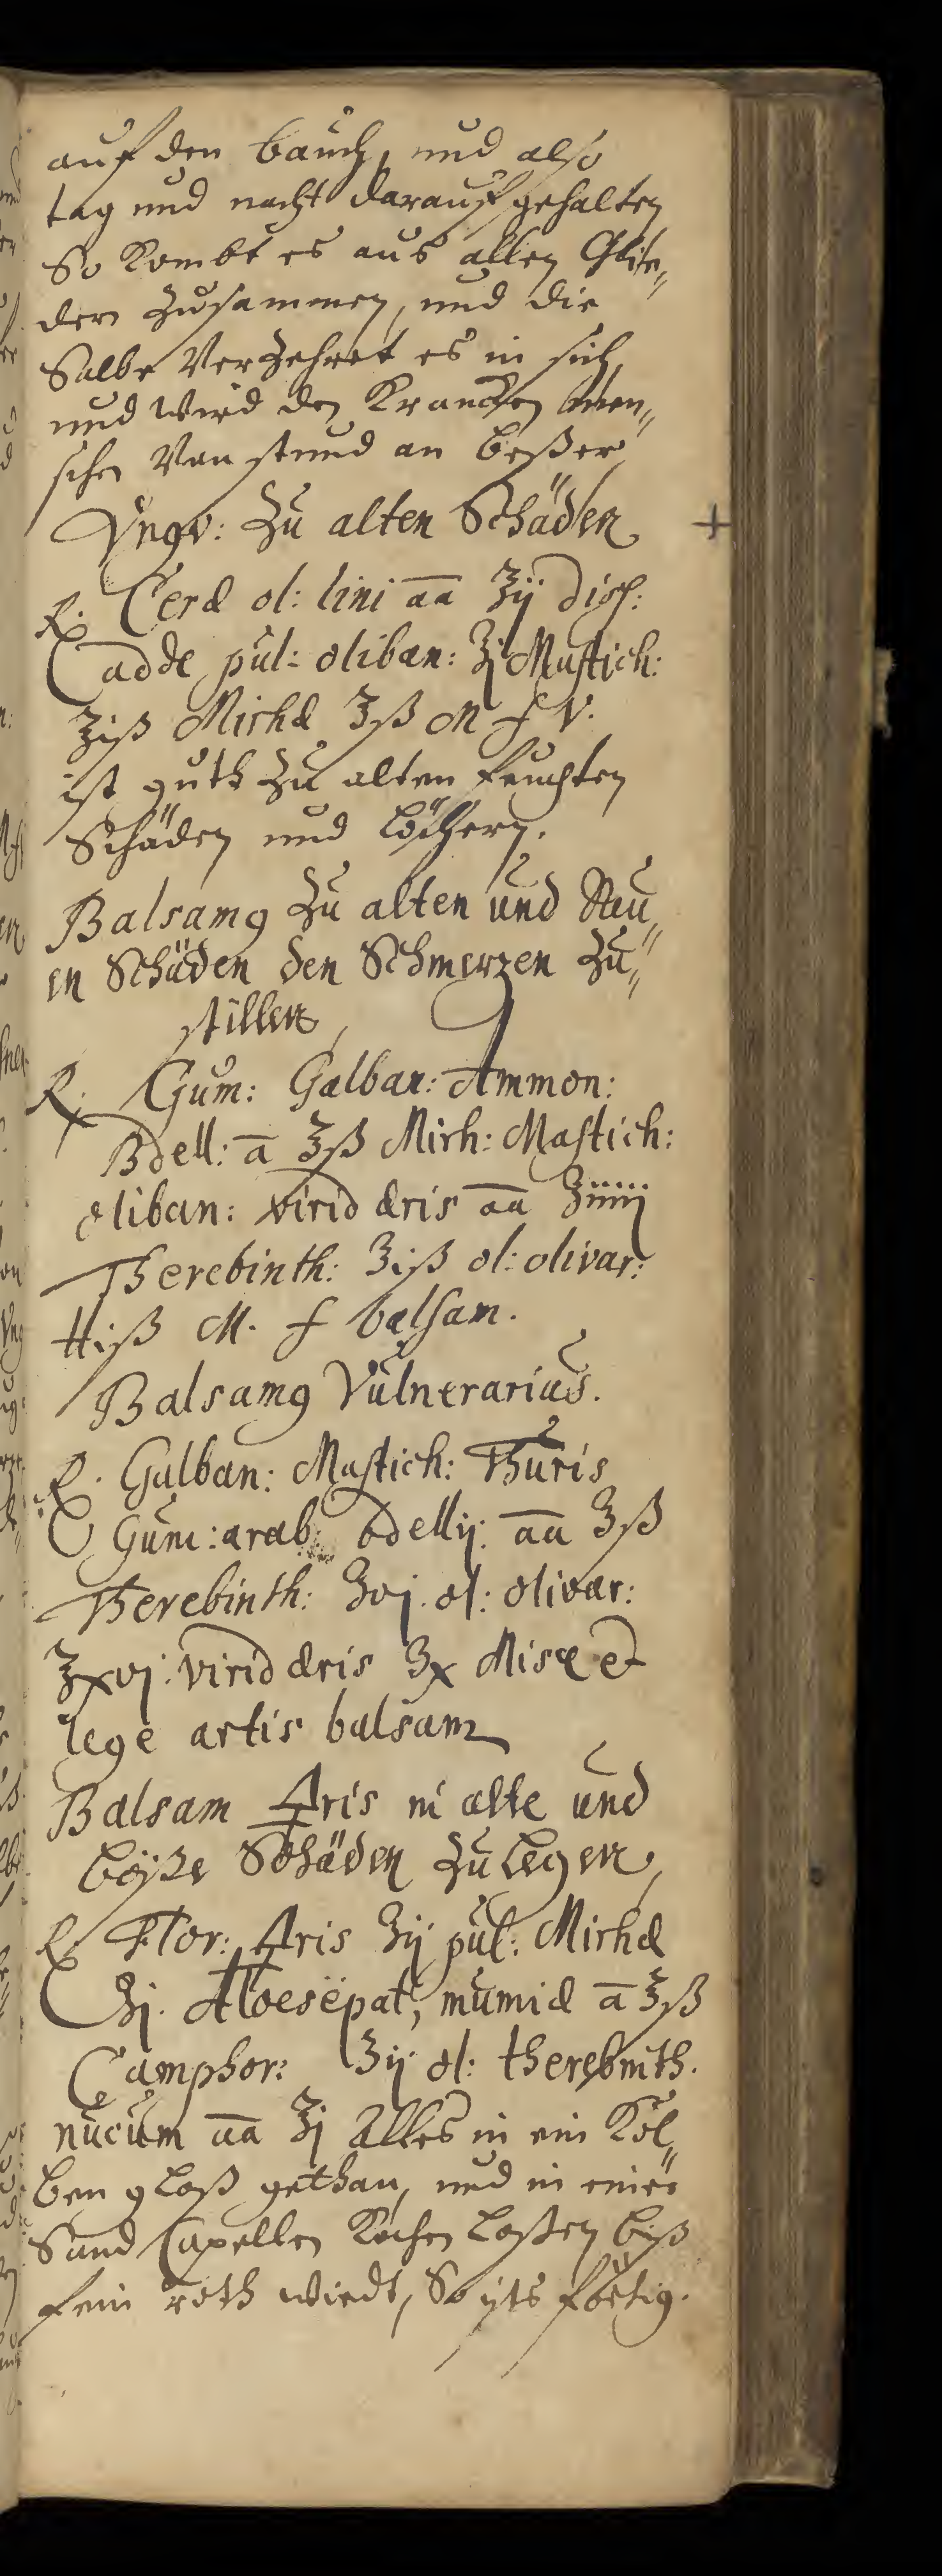 auf den bauch, und also
tag und nacht darauf gehalten
So Kombt es aus allen Glie„
dern Zusammen, und die
Salbe Verzehret es in sich,
und wird den Krancken Men„
schen Von stund an beßer,
Vngv: Zu alten Schäden +
℞. Ceræ ol: lini aa ʒij diss:
adde pul: oliban: ʒj Mastich:
ʒiß Mirhæ ʒß M f V.
ist guth Zu alten feuchten
Schäden und löchern.
Balsamꝰ Zu alten und Neu„
en Schäden den Schmerzen Zu„
stillen,
℞. Gum: Galban: Ammon:
Bdell: a ʒß Mirh: Mastich:
oliban: virid æris aa ʒiiiij
Therebinth: ʒiß ol: olivar:
℔iß M. f balsam.
Balsamꝰ Vulnerarius.
℞. Galban: Mastich: Thuris
Gum: arab: bdellij: aa ʒß
Therebinth: ʒvj. ol: olivar:
ʒxvj: virid æris ʒx Misce et
lege artis balsam
Balsam ♁ris in alte und
böße Schäden Zu legen,
℞. Flor: ♁ris ʒij pul: Mirhæ
ʒj. Aloesepat, mumiæ a ʒß
Camphor: ʒij ol: therebinth.
nucum aa ʒj Alles in ein Kol„
ben glaß gethan, und in einer
Sand Capellen Kochen laßen biß
fein roth wirdt, So ists förtig.